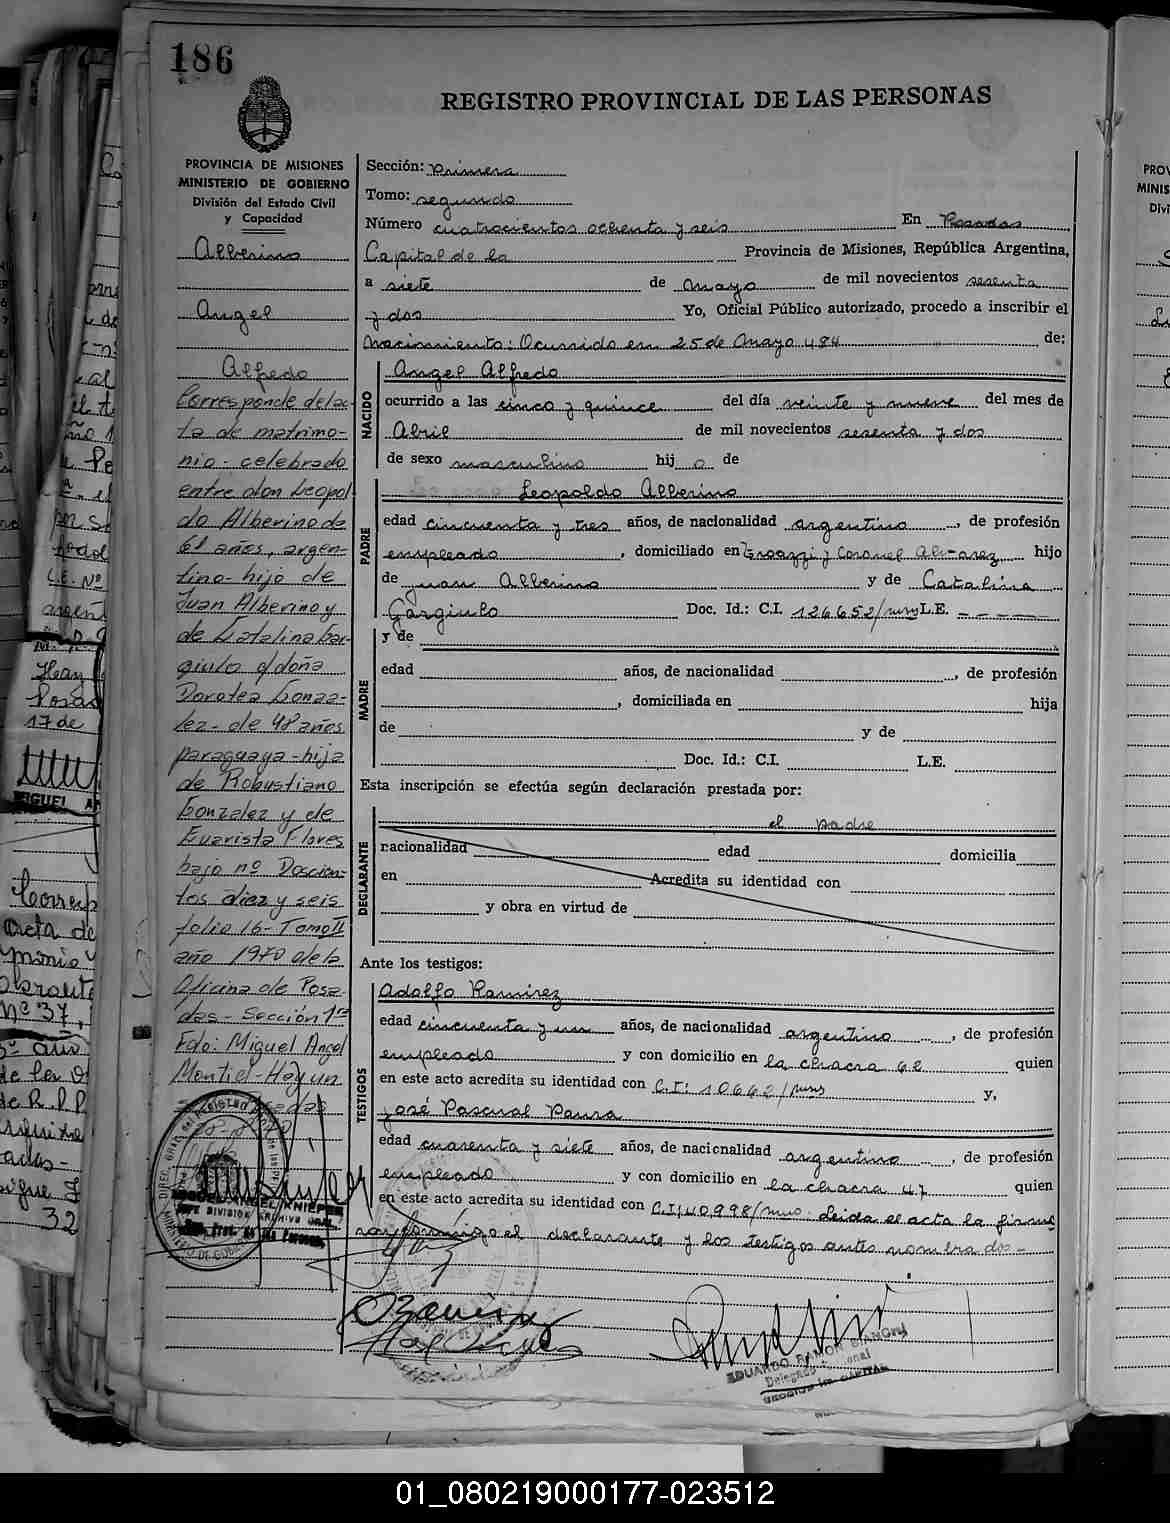 186
REGISTRO PROVINCIAL DE LAS PERSONAS
PROVINCIA DE MISIONES
MINISTERIO DE GOBIERNO
División del Estado Civil
y Capacidad
Alberino
Angel
Alfredo
Corresponde delac-
ta de matrimo-
nio - celebrado
entre don Leopol
do Alberino de
61 años, argen-
tino - hijo de
Juan Alberino y
de Catalina Gar-
giulo y doña
Dorotea Gonza-
lez - de 48 años
paraguaya - hija
de Robustiano
Gonzalez y de
Evarista Flores
bajo nº Doscien-
tos diez y seis
folio 16 - Tomo II
año 1970 de la
Oficina de Posa-
das - Sección 1ra
Fdo: Miguel Angel
Montiel - Hay un
MIGUEL ANGEL KNIEPER
JEFE DIVISION ARCHIVO GRAL.
Sección: Primera
Tomo: segundo
Número cuatrocientos ochenta y seis En Posadas
Capital de la Provincia de Misiones, República Argentina,
a siete de mayo de mil novecientos sesenta
y dos Yo, Oficial Público autorizado, procedo a inscribir el
Nacimiento: Ocurrido en 25 de Mayo 484 de:
NACIDO
Angel Alfredo
ocurrido a las cinco y quince del día veinte y nueve del mes de
Abril de mil novecientos sesenta y dos
de sexo masculino hij o de
PADRE
Leopoldo Alberino
edad cincuenta y tres años, de nacionalidad argentino, de profesión
empleado, domiciliado en y Coronel Alvarez hijo
de Juan Alberino y de Catalina
Gargiulo Doc. Id.: C.I. 126652/mnes L.E. - - - - -
MADRE
y de
edad años, de nacionalidad, de profesión
, domiciliada en hija
de y de
Doc. Id.: C.I. L.E.
Esta inscripción se efectúa según declaración prestada por:
DECLARANTE
el padre
nacionalidad edad domicilia
en Acredita su identidad con
y obra en virtud de
Ante los testigos:
TESTIGOS
Adolfo Ramirez
edad cincuenta y un años, de nacionalidad argentino, de profesión
empleado y con domicilio en la chacra 62 quien
en este acto acredita su identidad con C.I: 10662/mnes y,
José Pascual Parra
edad cuarenta y siete años, de nacionalidad argentino, de profesión
empleado y con domicilio en la chacra 47 quien
en este acto acredita su identidad con C.I: 40998/mnes. Leida el acta la firma
ron conmigo el declarante y los testigos antes nombrados -
EDUARDO RAMON
Delegado
01_080219000177-023512